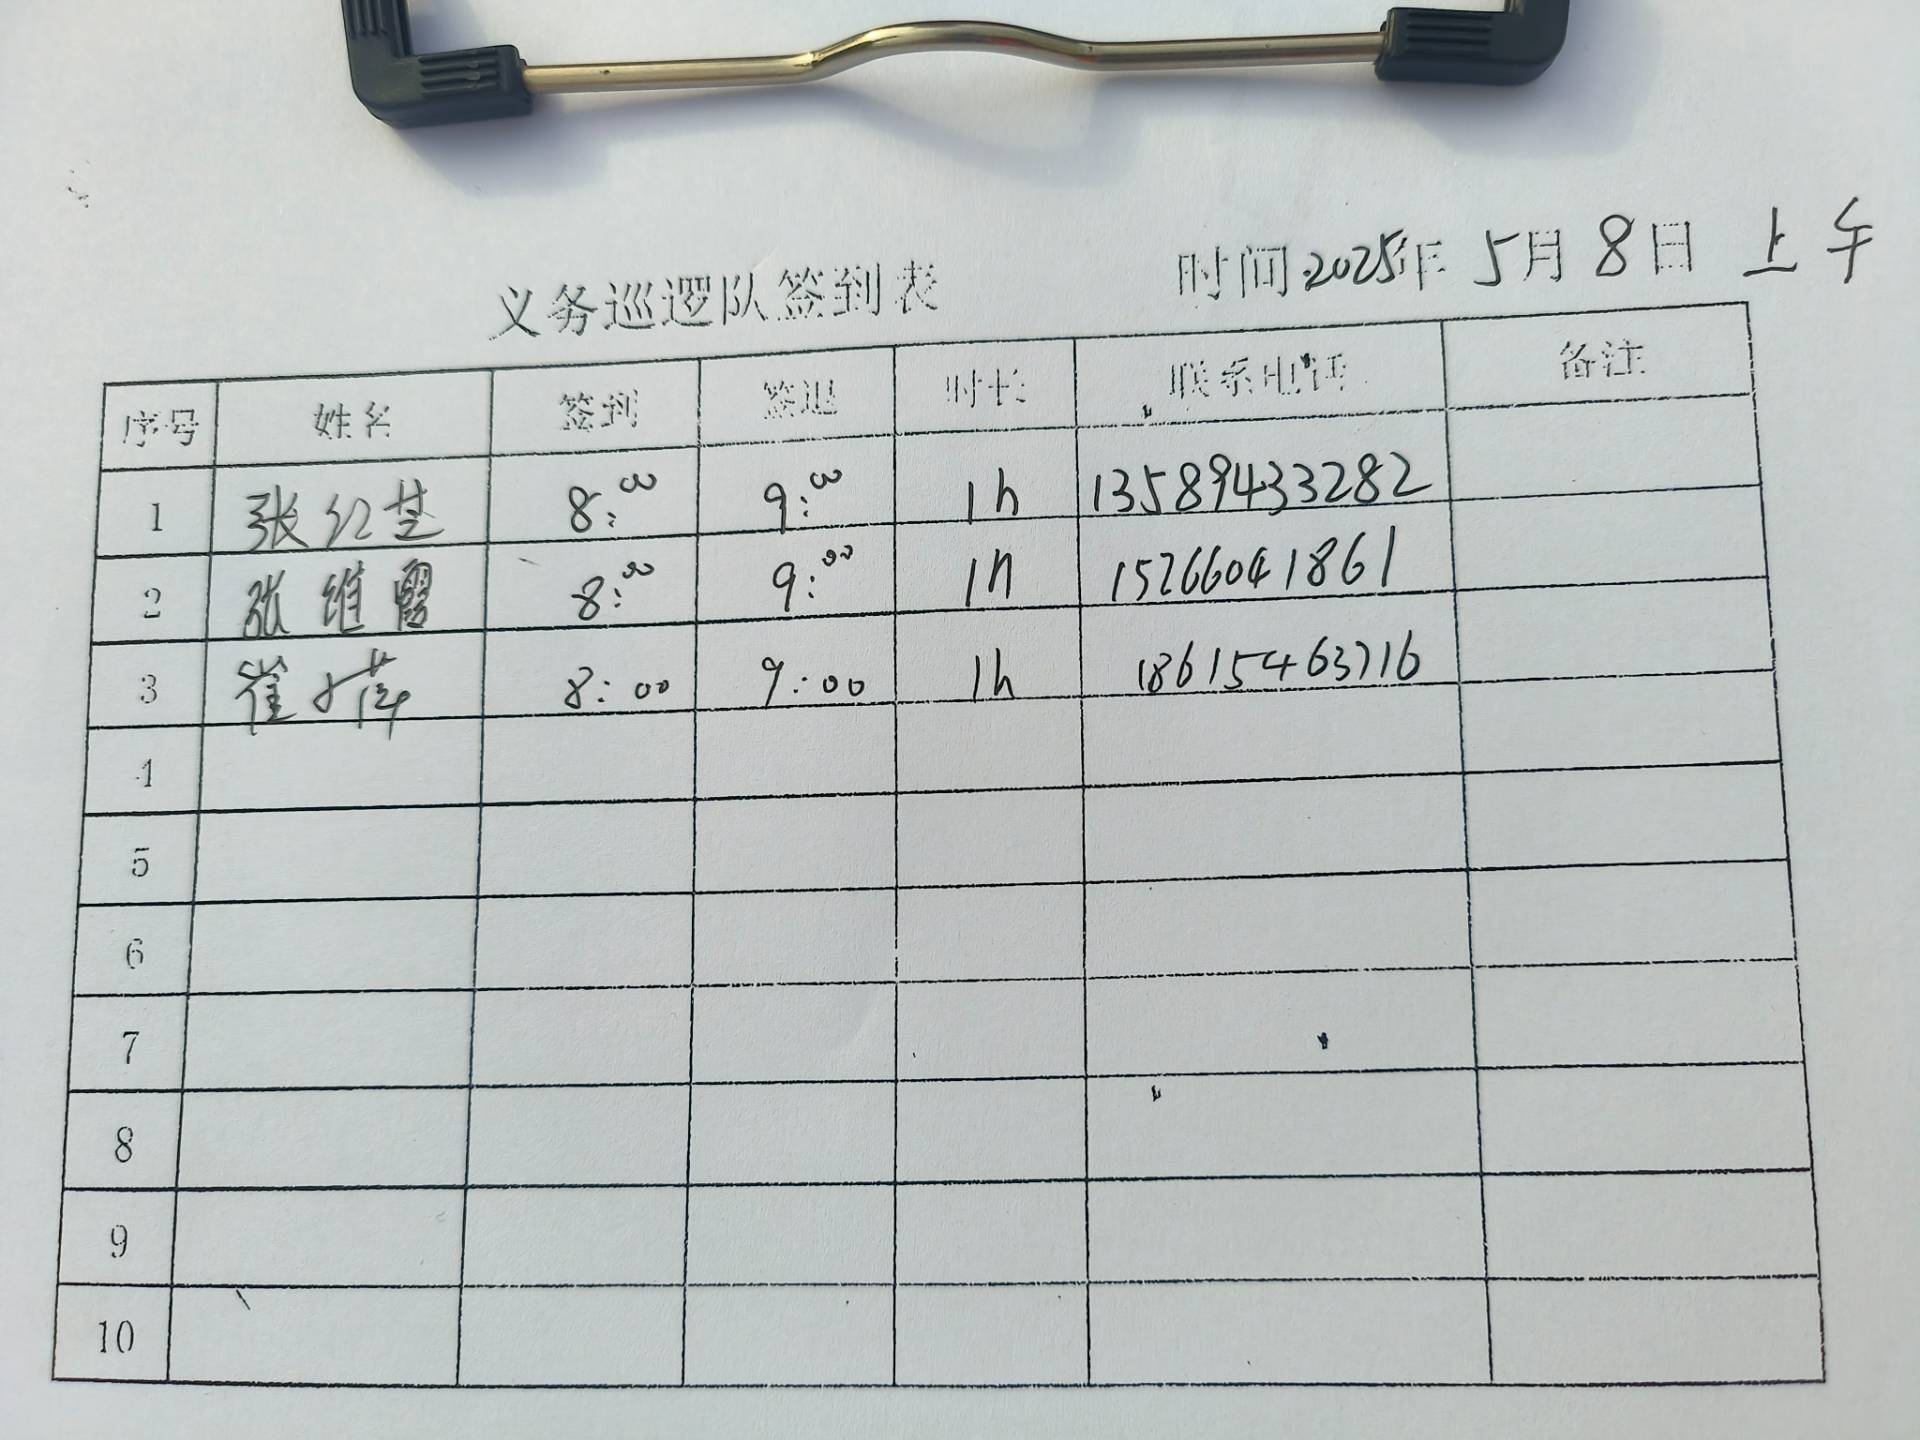 义务巡逻队签到表 时间2025年5月8日 上午
序号 姓名 签到 签退 时长 联系电话 备注
1 张红芝 8:00 9:00 1h 13589433282
2 张维霞 8:00 9:00 1h 15266041861
3 崔 8:00 9:00 1h 18615463716
4
5
6
7
8
9
10